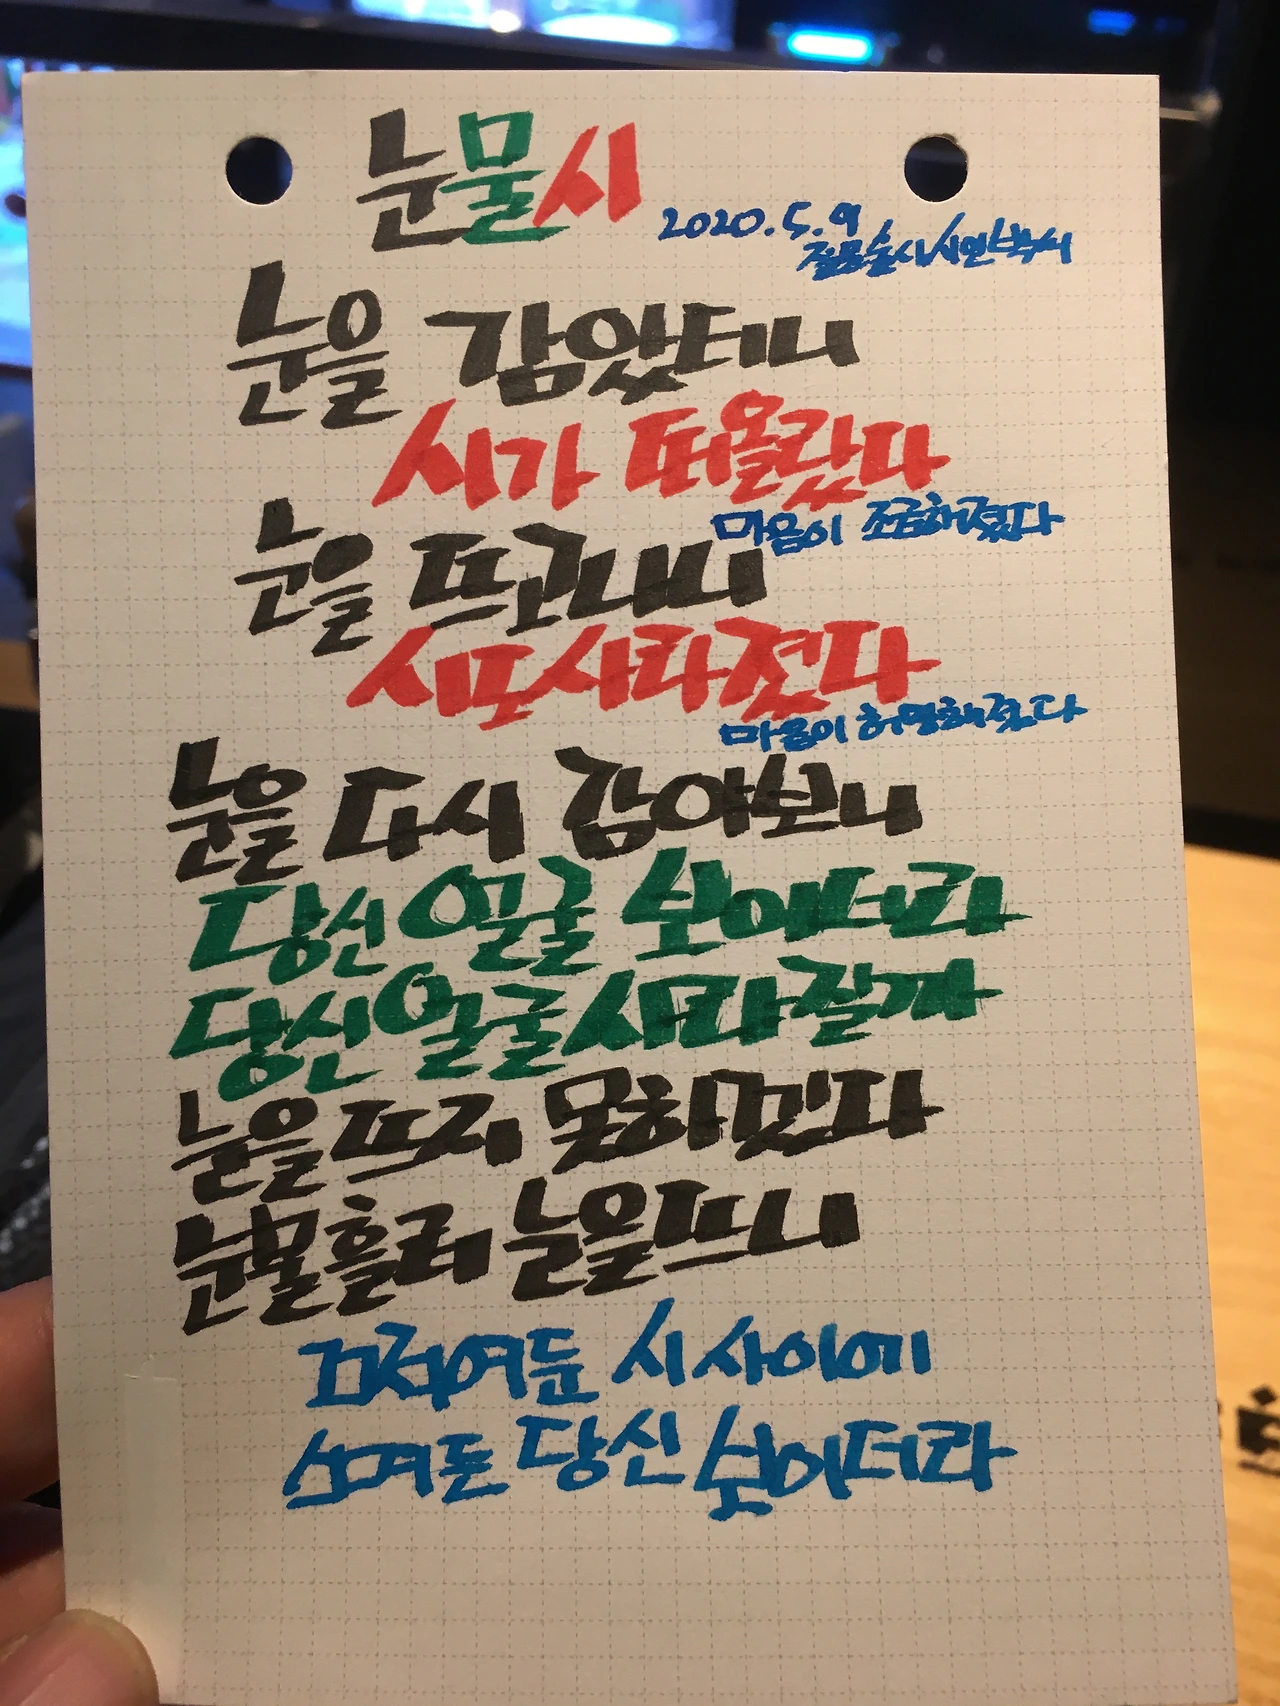 눈물시
2020.5.9
질문술사 시인박씨
눈을 감았더니
시가 떠올랐다
마음이 조급해졌다
눈을 뜨고나니
시또 사라졌다
마음이 허망해졌다
눈을 다시 감아보니
당신 얼굴 보이더라
당신 얼굴 사라질까
눈을 뜨지 못하겠다
눈물 흘러 눈을 뜨니
끄적여둔 시 사이에
스며든 당신 보이더라